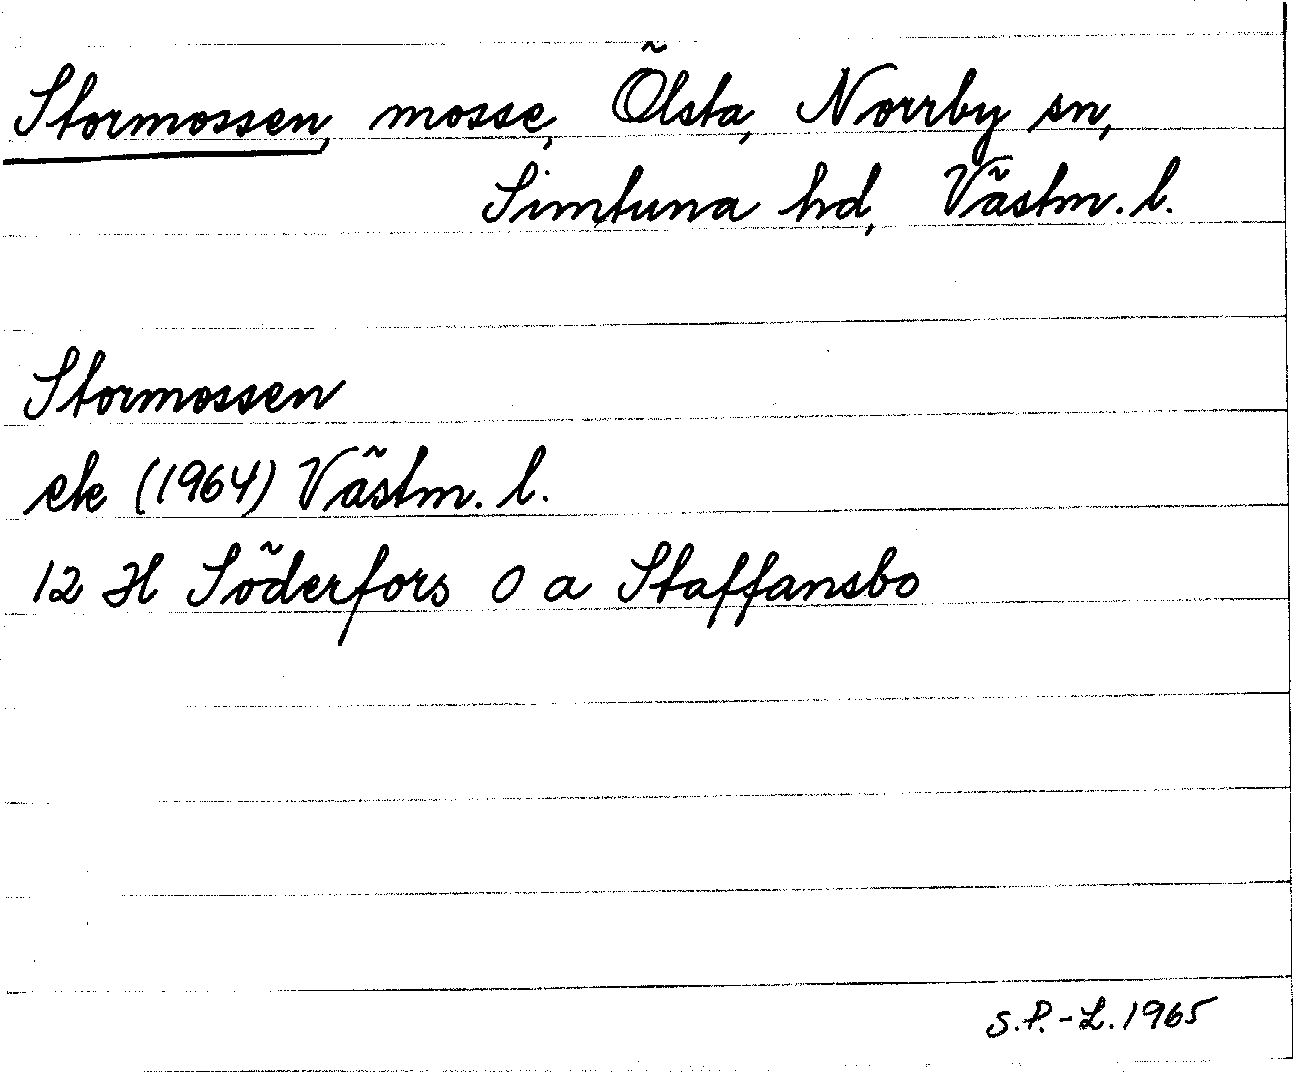 Stormossen, mosse, Ölsta, Norrby sn,
Simtuna hd, Västm. l.
Stormossen
ek (1964) Västm. l.
12 H Söderfors 0 a Staffansbo
S.P.-L. 1965